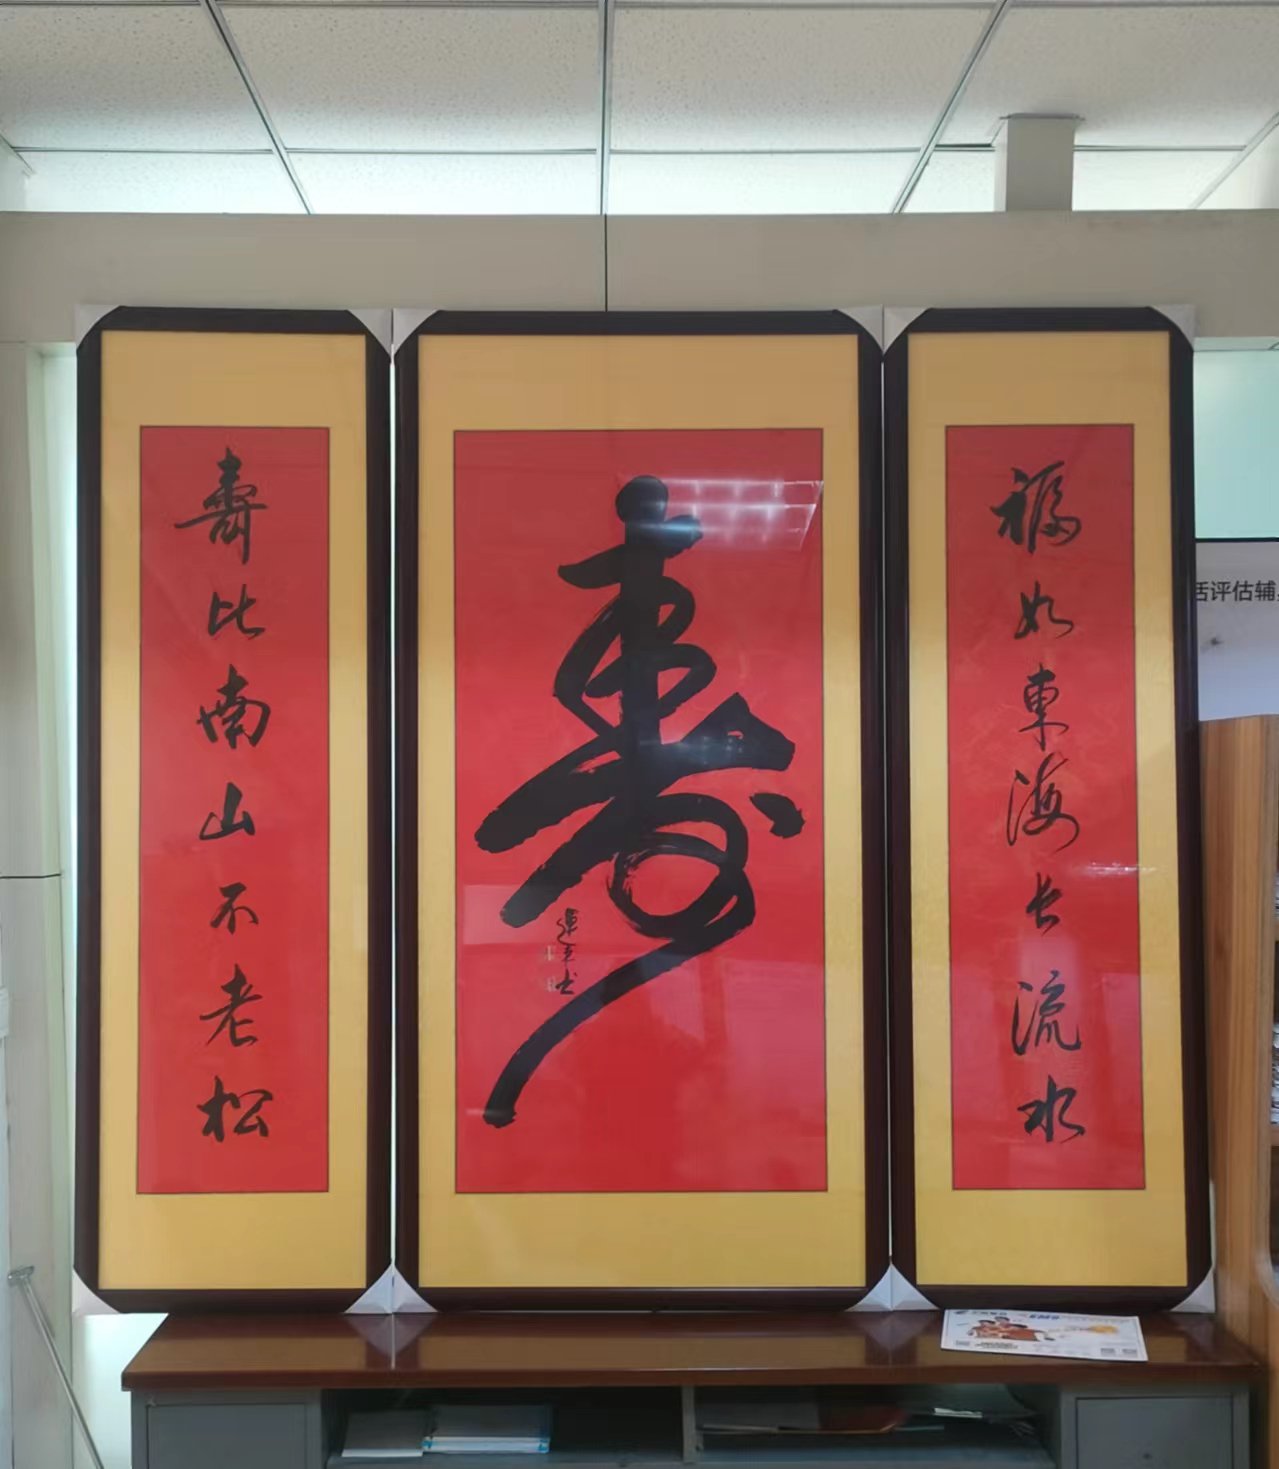 福如東海长流水
壽
壽比南山不老松
评估辅